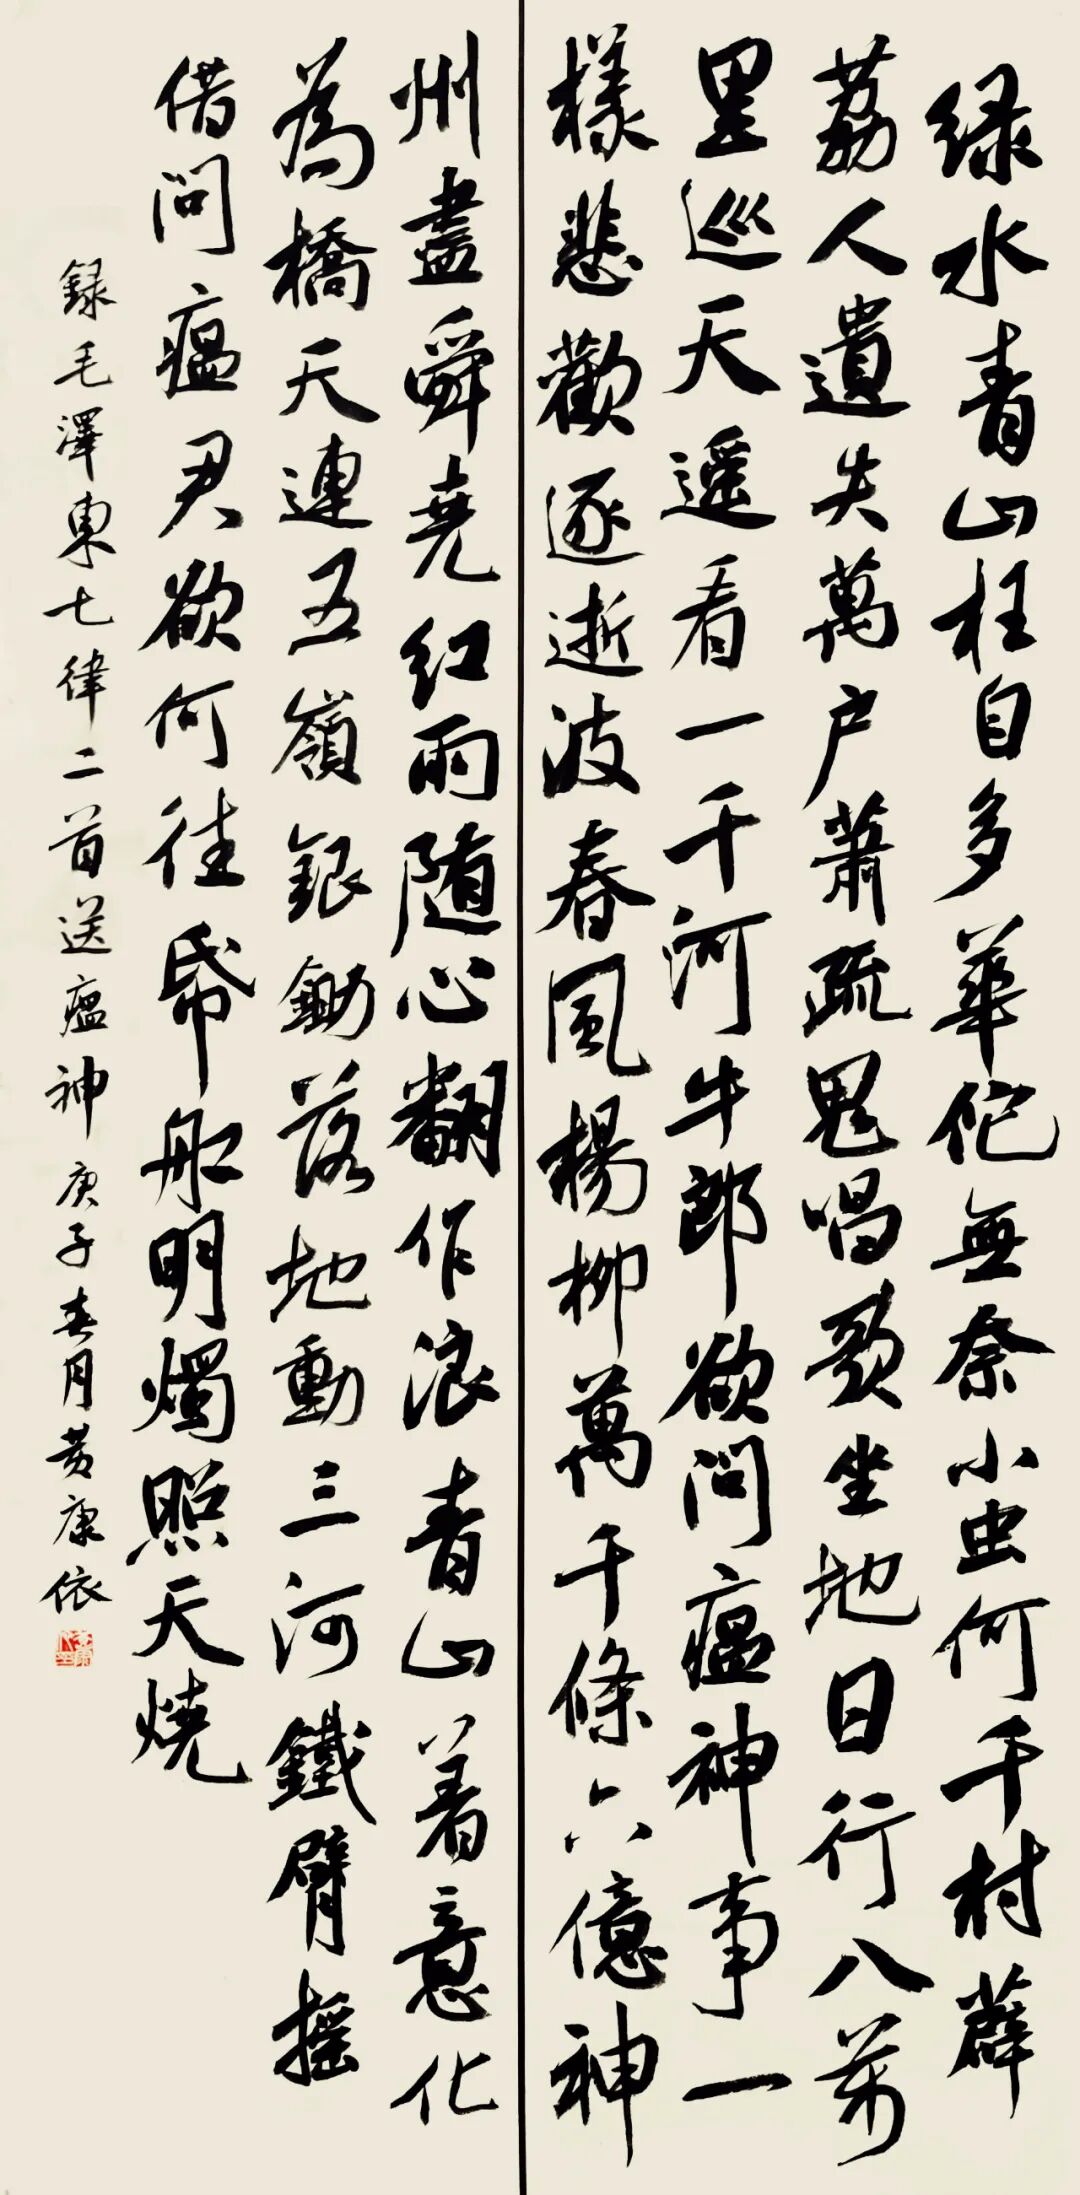 緑水青山枉自多華佗無奈小虫何千村薜
荔人遺失萬户蕭疏鬼唱歌坐地日行八萬
里巡天遥看一千河牛郎欲問瘟神事一
樣悲歡逐逝波春風楊柳萬千條六億神
州盡舜堯红雨随心翻作浪青山着意化
為橋天連五嶺銀鋤落地動三河鐵臂摇
借問瘟君欲何往紙船明燭照天燒
録毛澤東七律二首送瘟神庚子春月黄康依